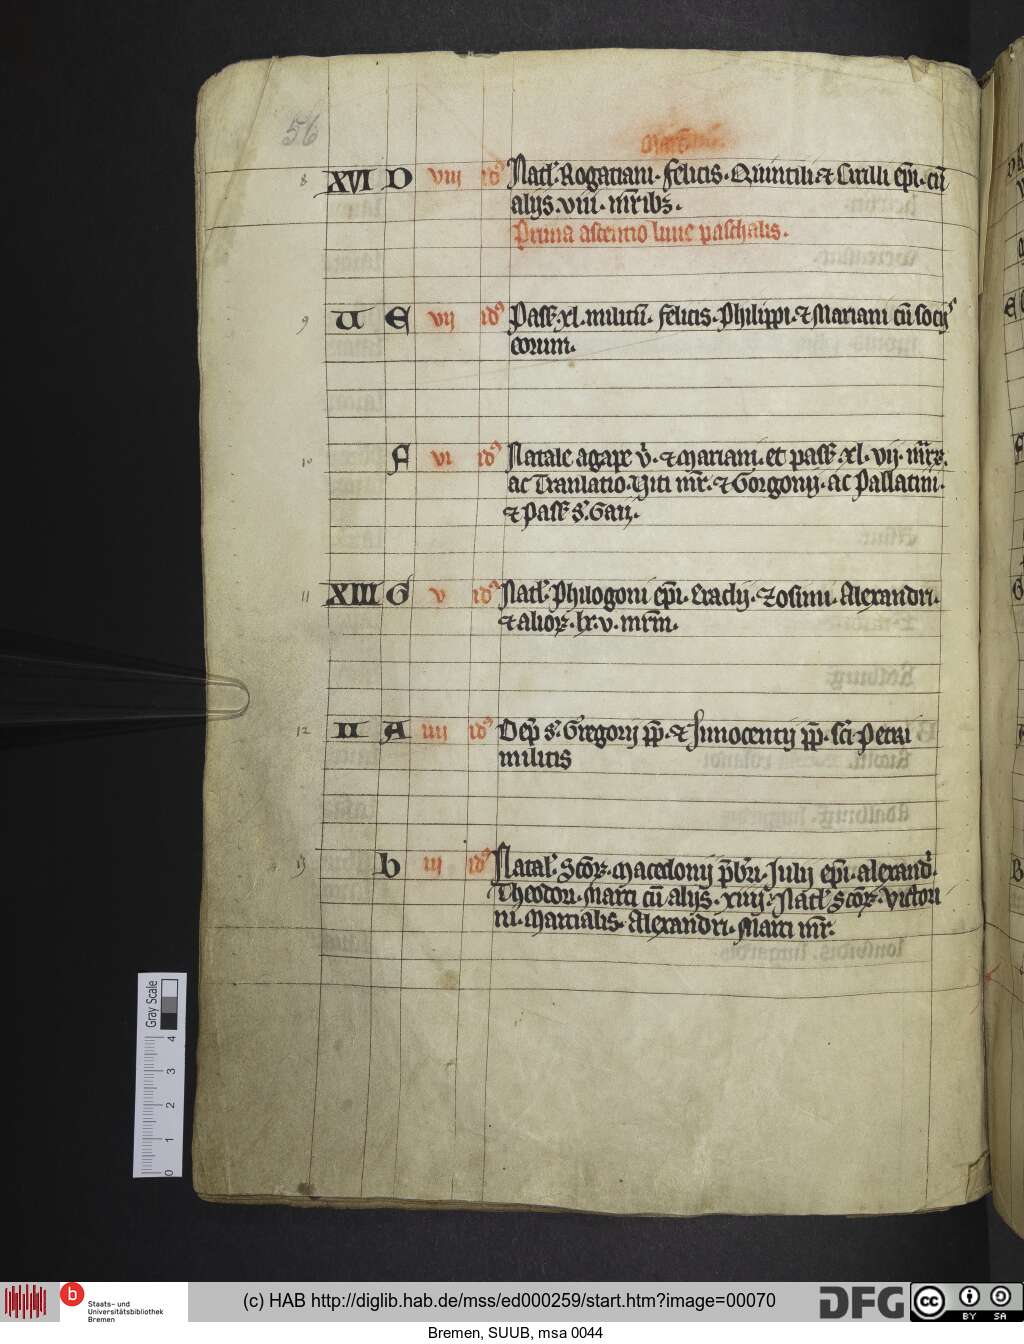 56
8 XVI D viii id9 Natl'. Rogatiani. felicis. Quintili ⁊ Cirilli ep̄i. cū
alijs. viii. mr̄ibꝫ.
Prima ascentio lune paschalis.
9 U E vij id9 Pass. xl. militū. felicis. Philippi. ⁊ Mariani cū socijs
eorum.
10 F vi id9 Natale agape v̄. ⁊ Mariani. et pass. xl. vij. mr̄ꝝ.
ac Tranlatio. Viti mr̄. ⁊ Gorgonij. ac Pallatini.
⁊ Pass. s. Gaij.
11 XIII G v id9 Natl'. Philogoni ep̄i. Eraclij. ⁊ Zosimi. Alexandri.
⁊ alioꝝ. lx. v. mr̄m.
12 II A iiii id9 Dep̄ s. Gregorij pp̄. ⁊ Innocentij pp̄. sc̄i Petri
militis
13 b iii id9 Natal'. Scōꝝ. Macedonij p̄bri. Julij ep̄i. alexand'.
Theodori. Marci cū alijs. xiiij. Natl'. Scōꝝ. Victori
ni. Martialis. Alexandri. Marci mr̄.
Gray Scale
4 3 2 1 0
Staats- und
Universitätsbibliothek
Bremen
(c) HAB http://diglib.hab.de/mss/ed000259/start.htm?image=00070
DFG
CC BY SA
Bremen, SUUB, msa 0044